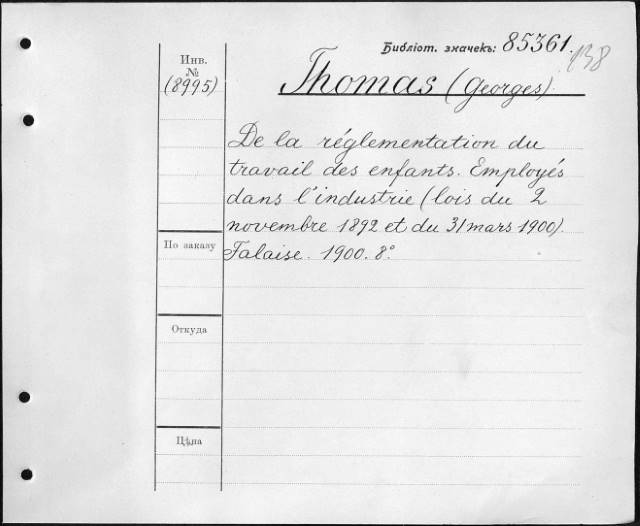 Библіот. значекъ: 85361.
138
Инв.
№
(8995)
Thomas (Georges)
De la réglementation du
travail des enfants. Employés
dans l'industrie (lois du 2
novembre 1892 et du 31 mars 1900).
Falaise. 1900. 8°
По заказу
Откуда
Цѣна